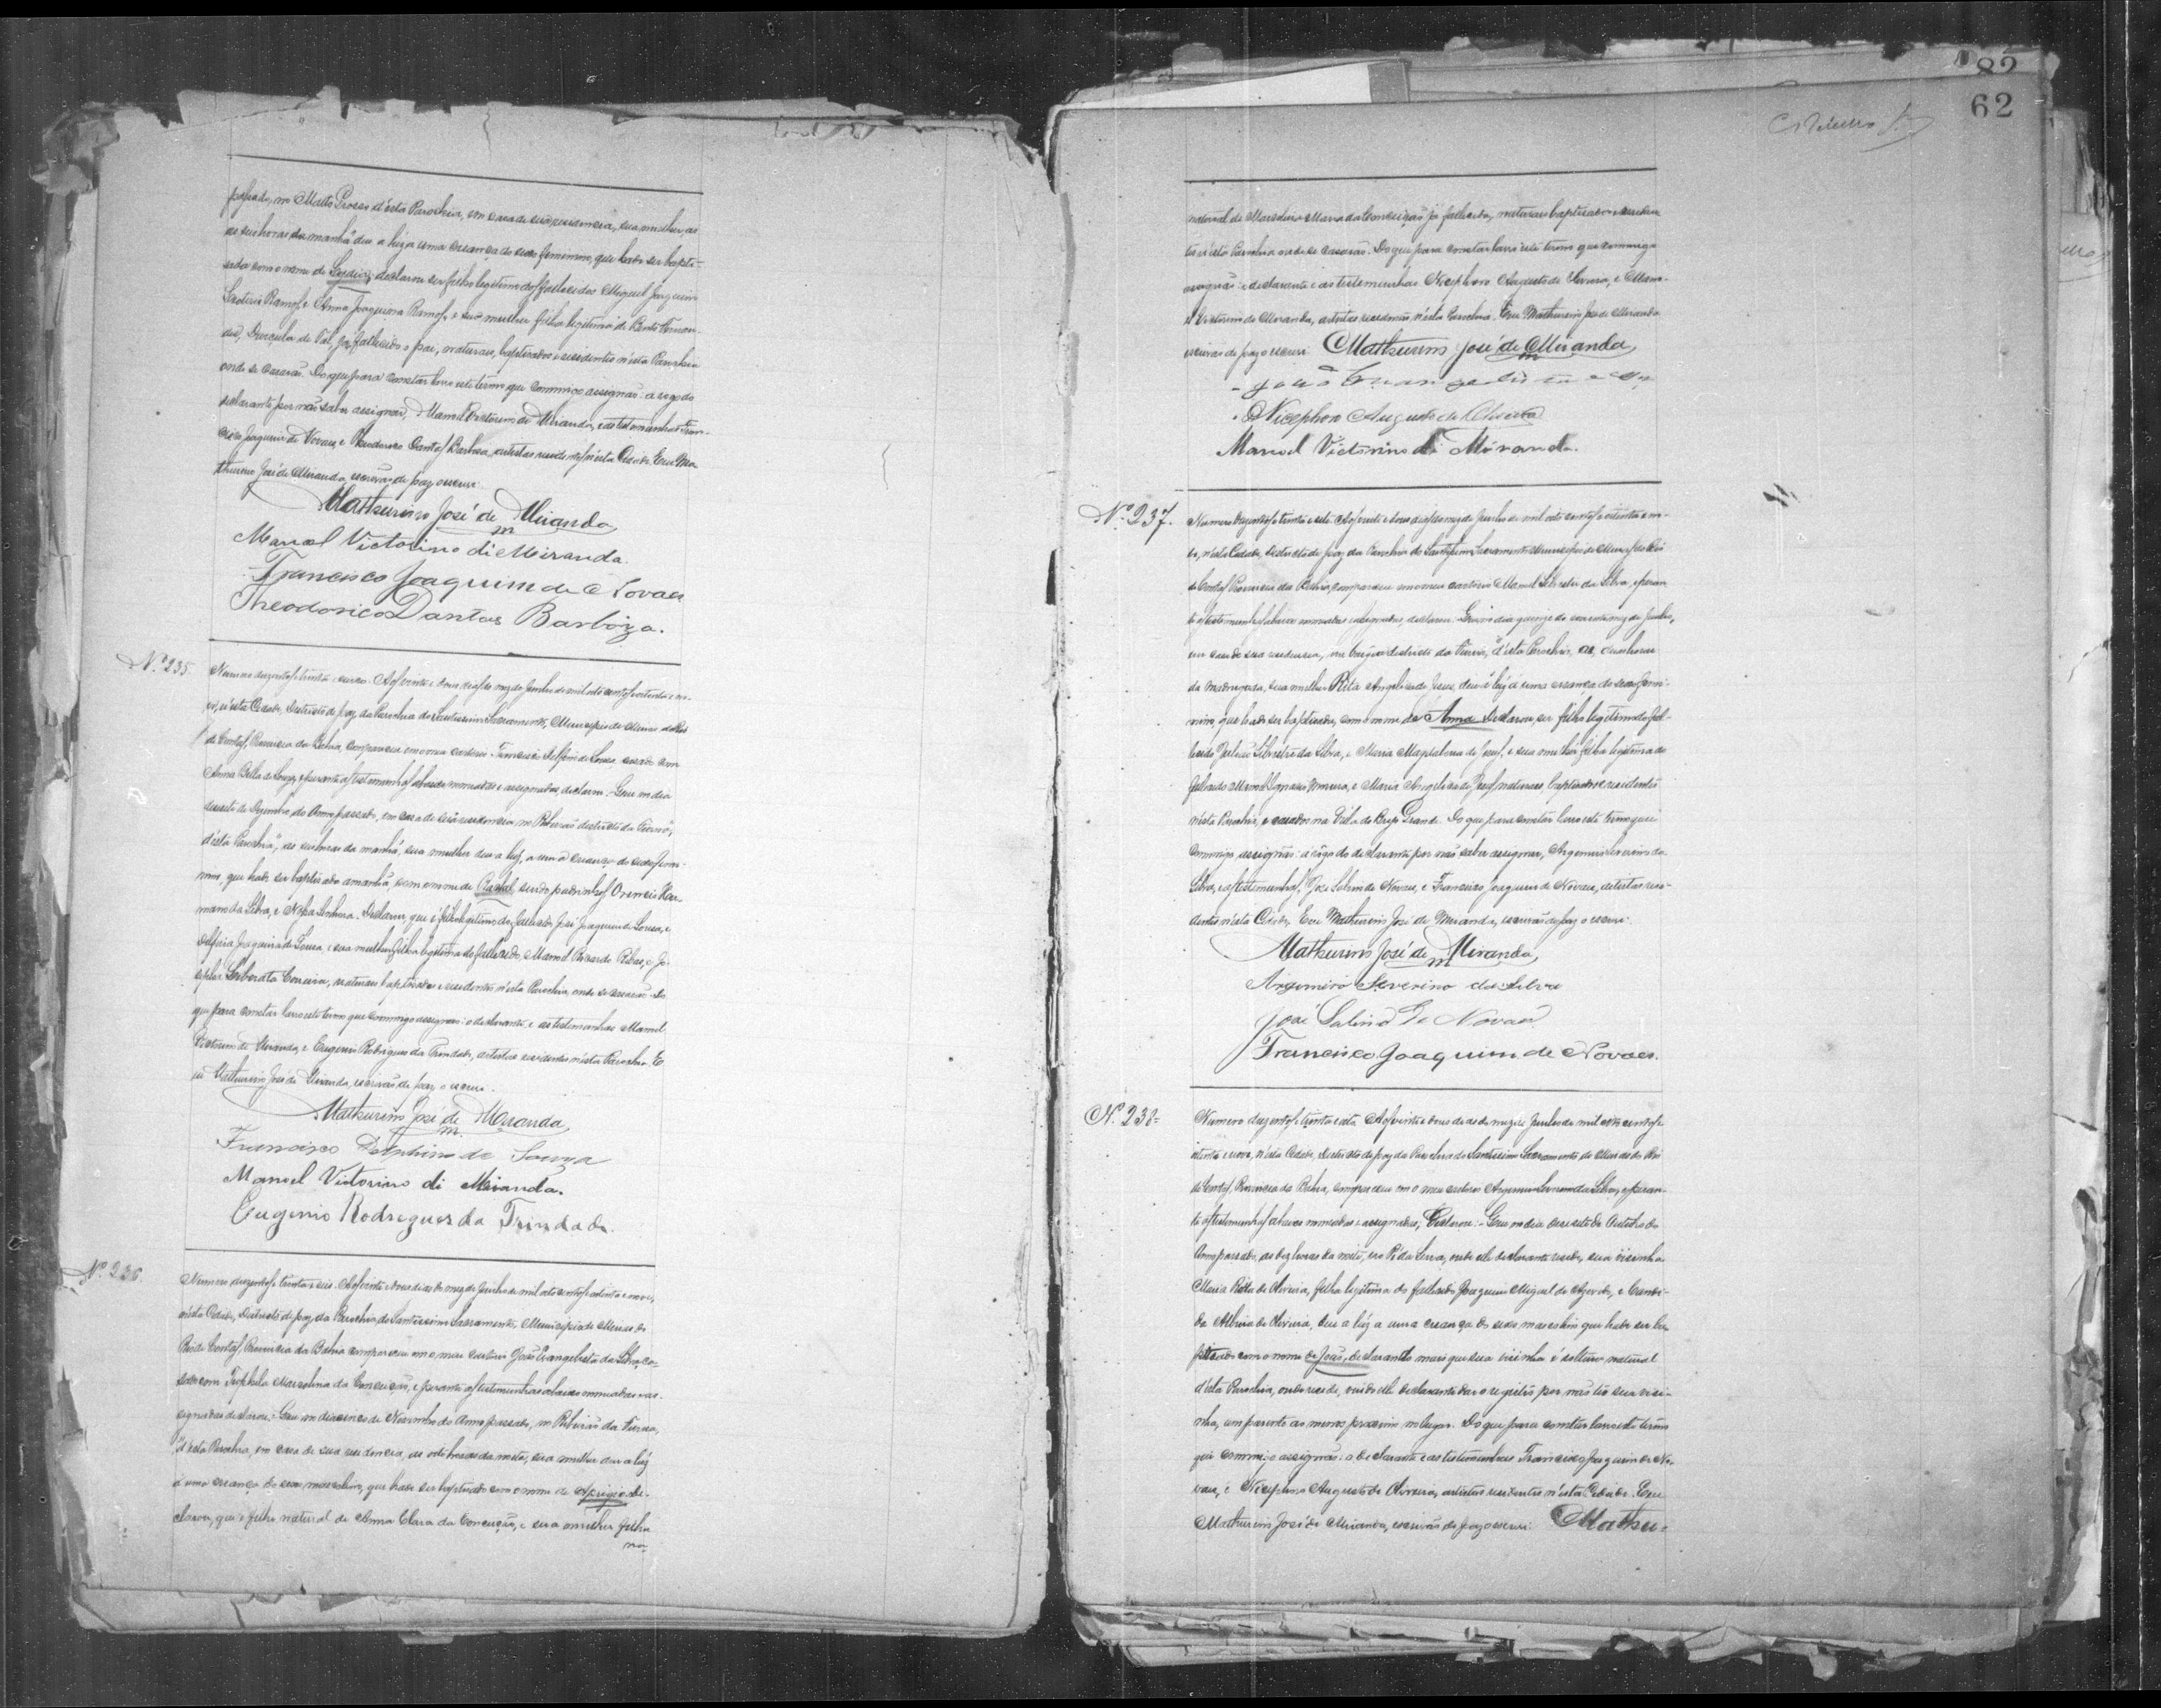 passado, no Matto Grosso d'esta Parochia, em casa de sua residencia, sua mulher, as
as seis horas da manhã deu a luz a uma creança do sexo feminino, que hade ser bapti-
sada com o nome de declarou ser filho legitimo dos fallecidos Miguel Joaquim
Ramos, e Anna Joaquina Ramos, e sua mulher filha legitima de Bento
de Tal, ja fallecido o pai, naturaes, baptizados e residentes n'esta Parochia
onde se casarão. Do que para constar lavro este termo que commigo assignão: a rogo do
declarante por não saber assignar, Manoel Victorino de Miranda, e as testemunhas Fran-
cisco Joaquim de Novaes, e Theodorico Dantas Barboza, artistas residentes n'esta Cidade. Eu Ma-
thurino José de Miranda, escrivão de paz o escrevi.
Mathurino José de Miranda
Manoel Victorino di Miranda.
Francisco Joaquim de Novaes
Theodorico Dantas Barboza.
Nº 235
Numero duzentos e trinta e cinco. Aos vinte e dous dias do mez de Junho de mil oito centos e oitenta e no-
ve, n'esta Cidade, Districto de paz da Parochia do Santissimo Sacramento, Municipio de Minas do Rio
de Contas, Provincia da Bahia, compareceu em o meu cartorio Francisco Delfino de Souza, casado com
Anna Bella de Souza, e perante as testemunhas abaixo nomeadas e assignadas, declarou: Que no dia
desesete de Dezembro do Anno passado, em casa de sua residencia, no Ribeirão districto da Furna,
d'esta Parochia, as seis horas da manhã, sua mulher deu a luz, a uma creança do sexo femi-
nino, que hade ser baptizada amanhã, com o nome de sendo padrinhos
da Silva, e Nossa Senhora. Declarou, que é filho legitimo do fallecido José Joaquim de Souza, e
Joaquina de Souza, e sua mulher filha legitima do fallecido Manoel Ricardo Ribas, e Jo-
sepha Liberata naturaes baptizados e residentes n'esta Parochia, onde se casarão. Do
que para constar lavro este termo que commigo assignão: o declarante, e as testemunhas Manoel
Victorino de Miranda, e Eugenio Rodrigues da Trindade, artistas residentes n'esta Parochia. E
eu Mathurino José de Miranda, escrivão de paz, o escrevi.
Mathurino José de Miranda
Francisco Delphino de Souza
Manoel Victorino di Miranda.
Eugenio Rodrigues da Trindade.
Nº 236.
Numero duzentos e trinta e seis. Aos vinte e dous dias do mez de Junho de mil oito centos e oitenta e nove,
n'esta Cidade, Districto de paz da Parochia do Santissimo Sacramento, Municipio de Minas do
Rio de Contas, Provincia da Bahia compareceu em o meu cartorio João Evangelista da Silva, ca-
sado com Marcolina da Conceição, e perante as testemunhas abaixo nomeadas e as-
signadas declarou: Que no dia cinco de Novembro do Anno passado, no Ribeirão da Furna,
d'esta Parochia, em casa de sua residencia, as oito horas da noite, sua mulher deu a luz
a uma creança do sexo masculino, que hade ser baptizado com o nome de Aprigio, de-
clarou, que é filho natural de Anna Clara da Conceição, e sua mulher filha
na-
82
62
natural de Marcolina Maria da Conceição já fallecida, naturaes baptizados e residen-
tes n'esta Parochia onde se casarão. Do que para constar lavro este termo que commigo
assignão: o declarante e as testemunhas Nicephoro Augusto de Oliveira, e Mano-
el Victorino de Miranda, artistas residentes n'esta Parochia. Eu Mathurino José de Miranda
escrivão de paz o escrevi. Mathurino José de Miranda
João Evangelista
Nicephoro Augusto de Oliveira
Manoel Victorino di Miranda.
Nº 237.
Numero duzentos e trinta e sete. Aos vinte e dous dias do mez de Junho de mil oito centos e oitenta e no-
ve, n'esta Cidade, Districto de paz da Parochia do Santissimo Sacramento Municipio de Minas do Rio
de Contas Provincia da Bahia, compareceu em o meu cartorio Manoel da Silva, e peran-
te as testemunhas abaixo nomeadas e assignadas, declarou: Que no dia quinze do corrente mez de Junho,
em casa de sua residencia, no districto da Furna, d'esta Parochia, as duas horas
da madrugada, sua mulher Rita Angelica de Jesus, deu a luz a uma creança do sexo femi-
nino, que hade ser baptizada, com o nome de Anna. Declarou, ser filho legitimo do fal-
lecido da Silva, e Maria Magdalena de Jesus, e sua mulher filha legitima do
fallecido Manoel Ignacio Moreira, e Maria Angelica de Jesus naturaes, baptizados e residentes
n'esta Parochia, e casados na Villa do Brejo Grande. Do que para constar lavro este termo que
commigo assignão: a rogo do declarante por não saber assignar, Argemiro Severino da
Silva, e as testemunhas, José Sabino de Novaes, e Francisco Joaquim de Novaes, artistas resi-
dentes n'esta Cidade. Eu Mathurino José de Miranda, escrivão de paz o escrevi.
Mathurino José de Miranda
Argemiro Severino da Silva
José Sabino de Novaes
Francisco Joaquim de Novaes.
Nº 238-
Numero duzentos e trinta e oito. Aos vinte e dous dias do mez de Junho de mil oito centos e
oitenta e nove, n'esta Cidade, Districto de paz da Parochia do Santissimo Sacramento de Minas do Rio
de Contas, Provincia da Bahia, compareceu em o meu cartorio Argemiro Severino da Silva, e peran-
te as testemunhas abaixo nomeadas e assignadas, Declarou:- Que no dia desesete de Outubro do
Anno passado, as dez horas da noite, no Pé da Serra, onde elle declarante reside, sua visinha
Maria Rita de Oliveira, filha legitima do fallecido Joaquim Miguel de Azevedo, e Candi-
da Albina de Oliveira, deu a luz a uma creança do sexo masculino que hade ser ba-
ptisado com o nome de João, declarando mais que sua visinha é solteira natural
d'esta Parochia, onde reside, vindo elle declarante dar o registro por não ter sua visi-
nha, um parente ao menos proximo no lugar. Do que para constar lavro este termo
que commigo assignão: o declarante e as testemunhas Francisco Joaquim de No-
vaes, e Nicephoro Augusto de Oliveira, artistas residentes n'esta Cidade. Eu
Mathurino José de Miranda, escrivão de paz o escrevi. Mathu-